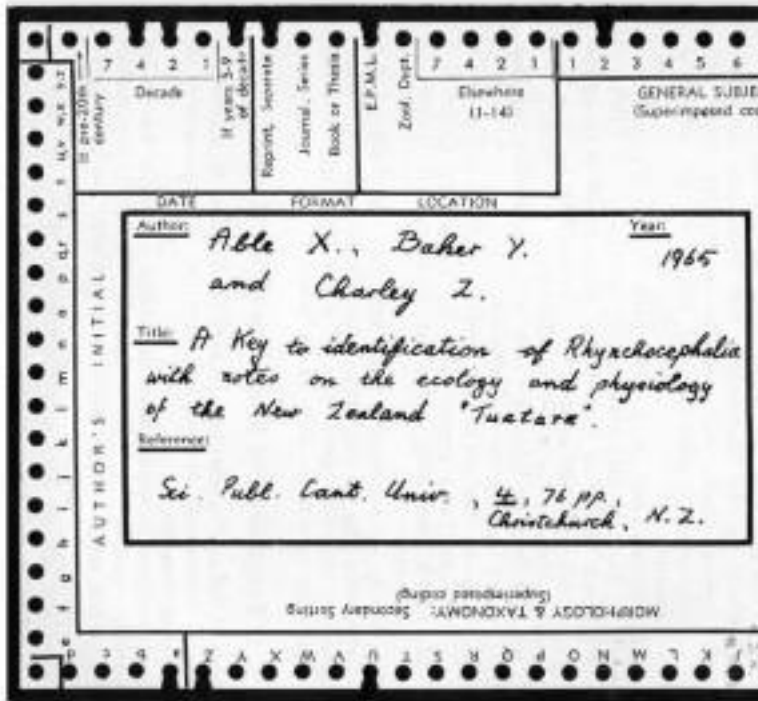 7 4 2 1
7 4 2 1
1 2 3 4 5 6
If pre-20th century
Decade
If years 5-9 of decade
Reprint, Separate
Journal, Series
Book or Thesis
E.P.M.L.
Zool. Dept.
Elsewhere
(1-14)
GENERAL SUBJE
(Superimposed co
DATE FORMAT LOCATION
AUTHOR'S INITIAL
Author: Able X., Baker Y. Year:
and Charley Z. 1965
Title: A Key to identification of Rhynchocephalia
with notes on the ecology and physiology
of the New Zealand "Tuatara".
Reference:
Sci. Publ. Cant. Univ., 4, 76 pp.,
Christchurch, N.Z.
MORPHOLOGY & TAXONOMY: Secondary Sorting
(Superimposed coding)
e f g h i j k l m n o p q r s t
d c b a Z Y X W V U T S R Q P O N M L K J